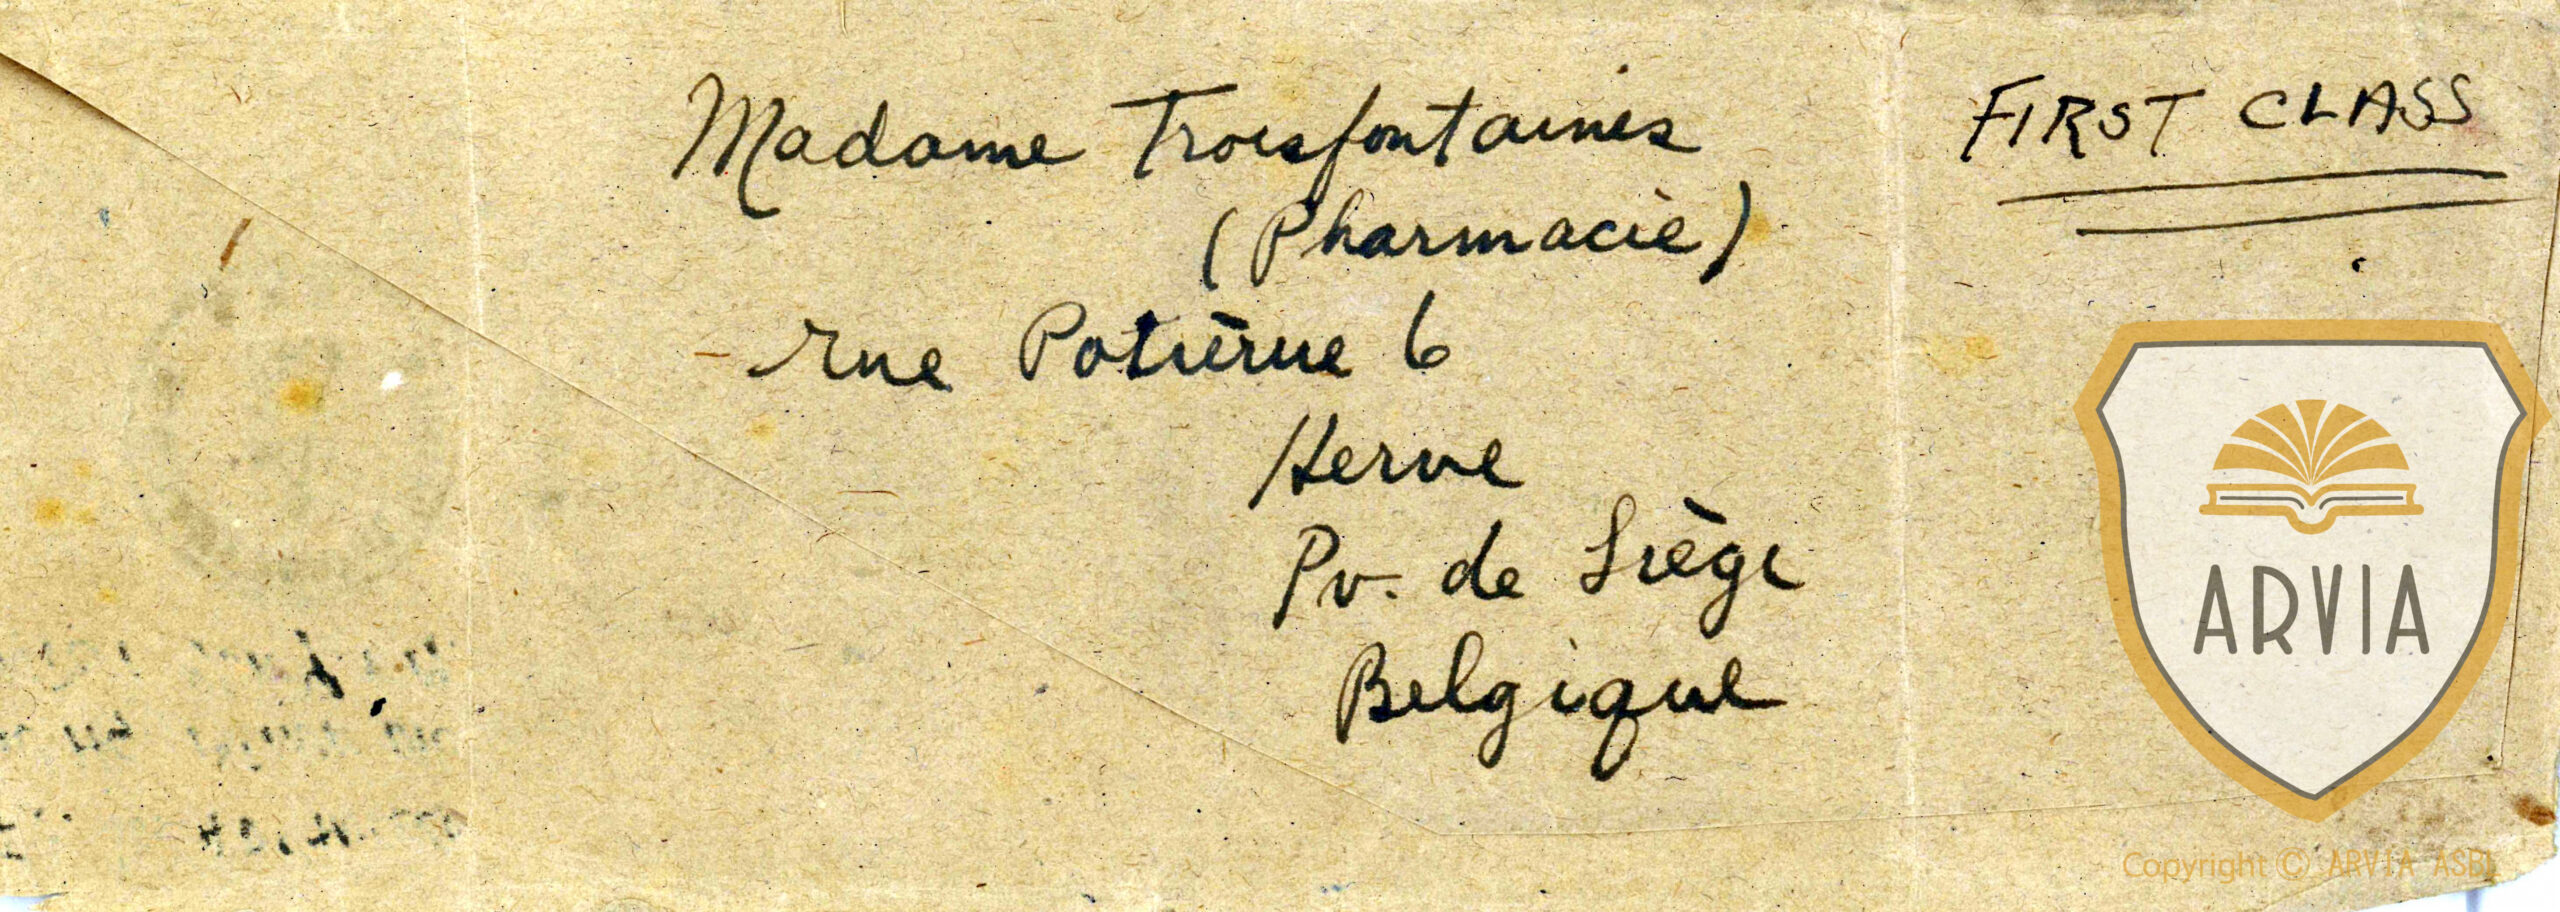 Madame Troisfontaines
FIRST CLASS
(Pharmacie)
rue Potièrue 6
Herve
Pv. de Liège
Belgique
ARVIA
Copyright © ARVIA ASBL